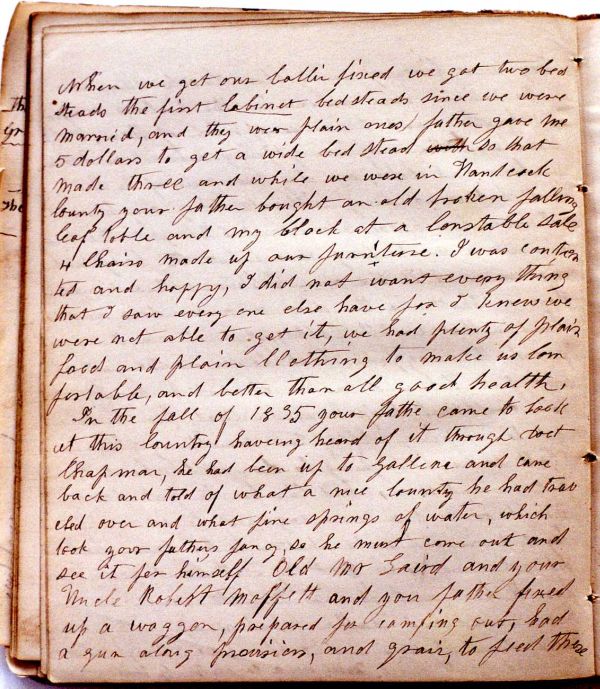 When we get our Cabbin fixed we got two bed
steads the first Cabinet bedsteads since we were
married, and they wear plain ones father gave me
5 dollars to get a wide bed stead with so that
made three and while we were in Handcock
County your father bought an old broken falling
leaf table and my Clock at a Constable Sale
4 Chairs made up our furniture. I was conten
ted and happy, I did not want every thing
that I saw every one else have for I knew we
were not able to get it, we had plenty of plain
food and plain Clothing to make us Com
fortable, and better than all good health,
In the fall of 1835 your fathe came to look
at this Country haveing heard of it through
Chapman, he had been up to Gallena and came
back and told of what a nice County he had trav
eled over and what fine springs of water, which
took your fathers fancy, so he must come out and
see it for himself Old Mr Laird and your
Uncle Robert Moffett and you father fixed
up a waggon, prepared for camping out, had
a gun along provision, and grain, to feed there
Th